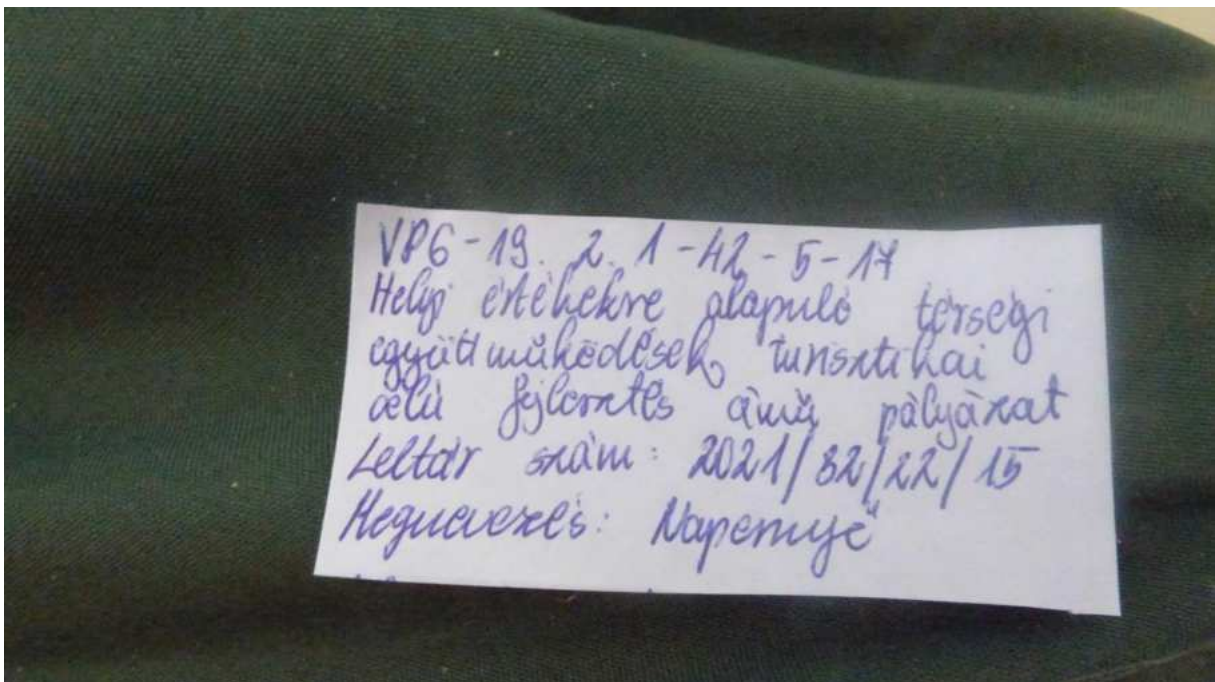 VP6-19. 2. 1-42-5-17
Helyi értékekre alapuló térségi
együttműködések, turisztikai
célú fejlesztés című pályázat
Leltár szám: 2021/32/22/15
Megnevezés: Napernyő